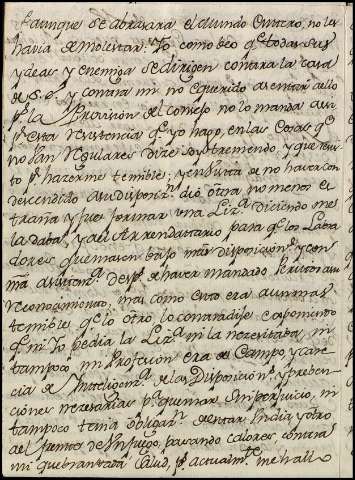 aunque se abrasara el mundo entero, no les
havia de molestar. Yo como veo qe todas sus
ydeas y enemiga se dirigen contra la casa
de S. E. y contra mi no e querido asentir a ello
pr. la Provision del consejo no lo manda asi
pr. esta resistencia qe yo hago, en las cosas qe
no son regulares dize soy tremendo, y que
to pr. hazerme temible; y en vista de no haver con
descendido a su disposizn. dió otra no menos es
traña y fue formar una Liza. diciendo me
la daba, y a el Arrendatario para qe los Labra
dores quemasen bajo mi disposicion, y con
mi asistenza. despa. de haver mandado
reconocimiento, mas como esto era aun mas
temible qe lo otro lo contradije exponiendo
qe ni Yo pedia la Liza. ni la necesitaba, ni
tampoco mi Profesion era de Campo y care
cia de Inteligenza. de las Disposicions. y preben
ciones necesarias pa. quemar sin perjuicio, ni
tampoco tenia obligazn. de estar Un dia y otro
a el frente de Un fuego, pasando calores, contra
mi quebrantada salud, pr. actualmte. me hallo